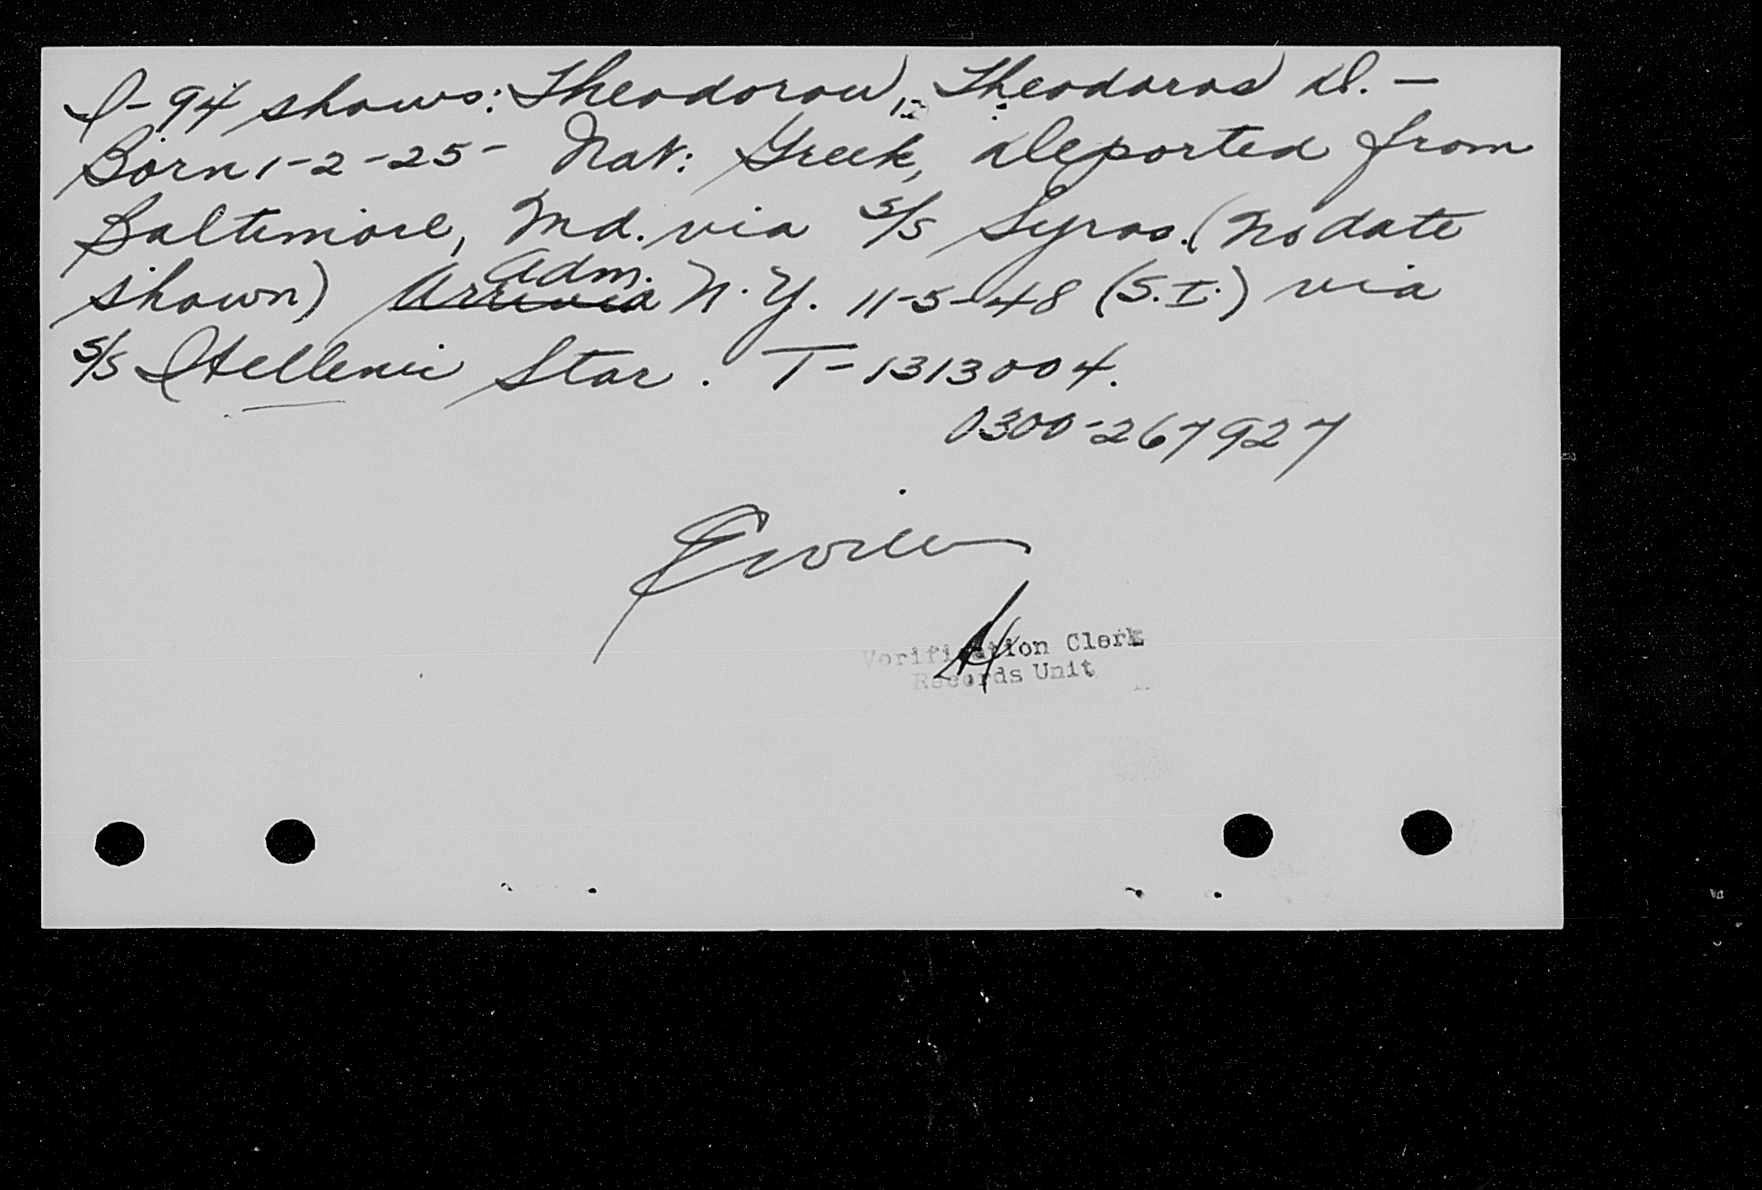 I-94 shows: Theodorou, Theodoros D. -
Born 1-2-25- Nat: Greek, Deported from
Baltimore, Md. via S/S Syros. (No date
Adm.
shown) Arrived N.Y. 11-5-48 (S.I.) via
S/S Hellenic Star. T-1313004.
0300-267927
Verification Clerk
Records Unit